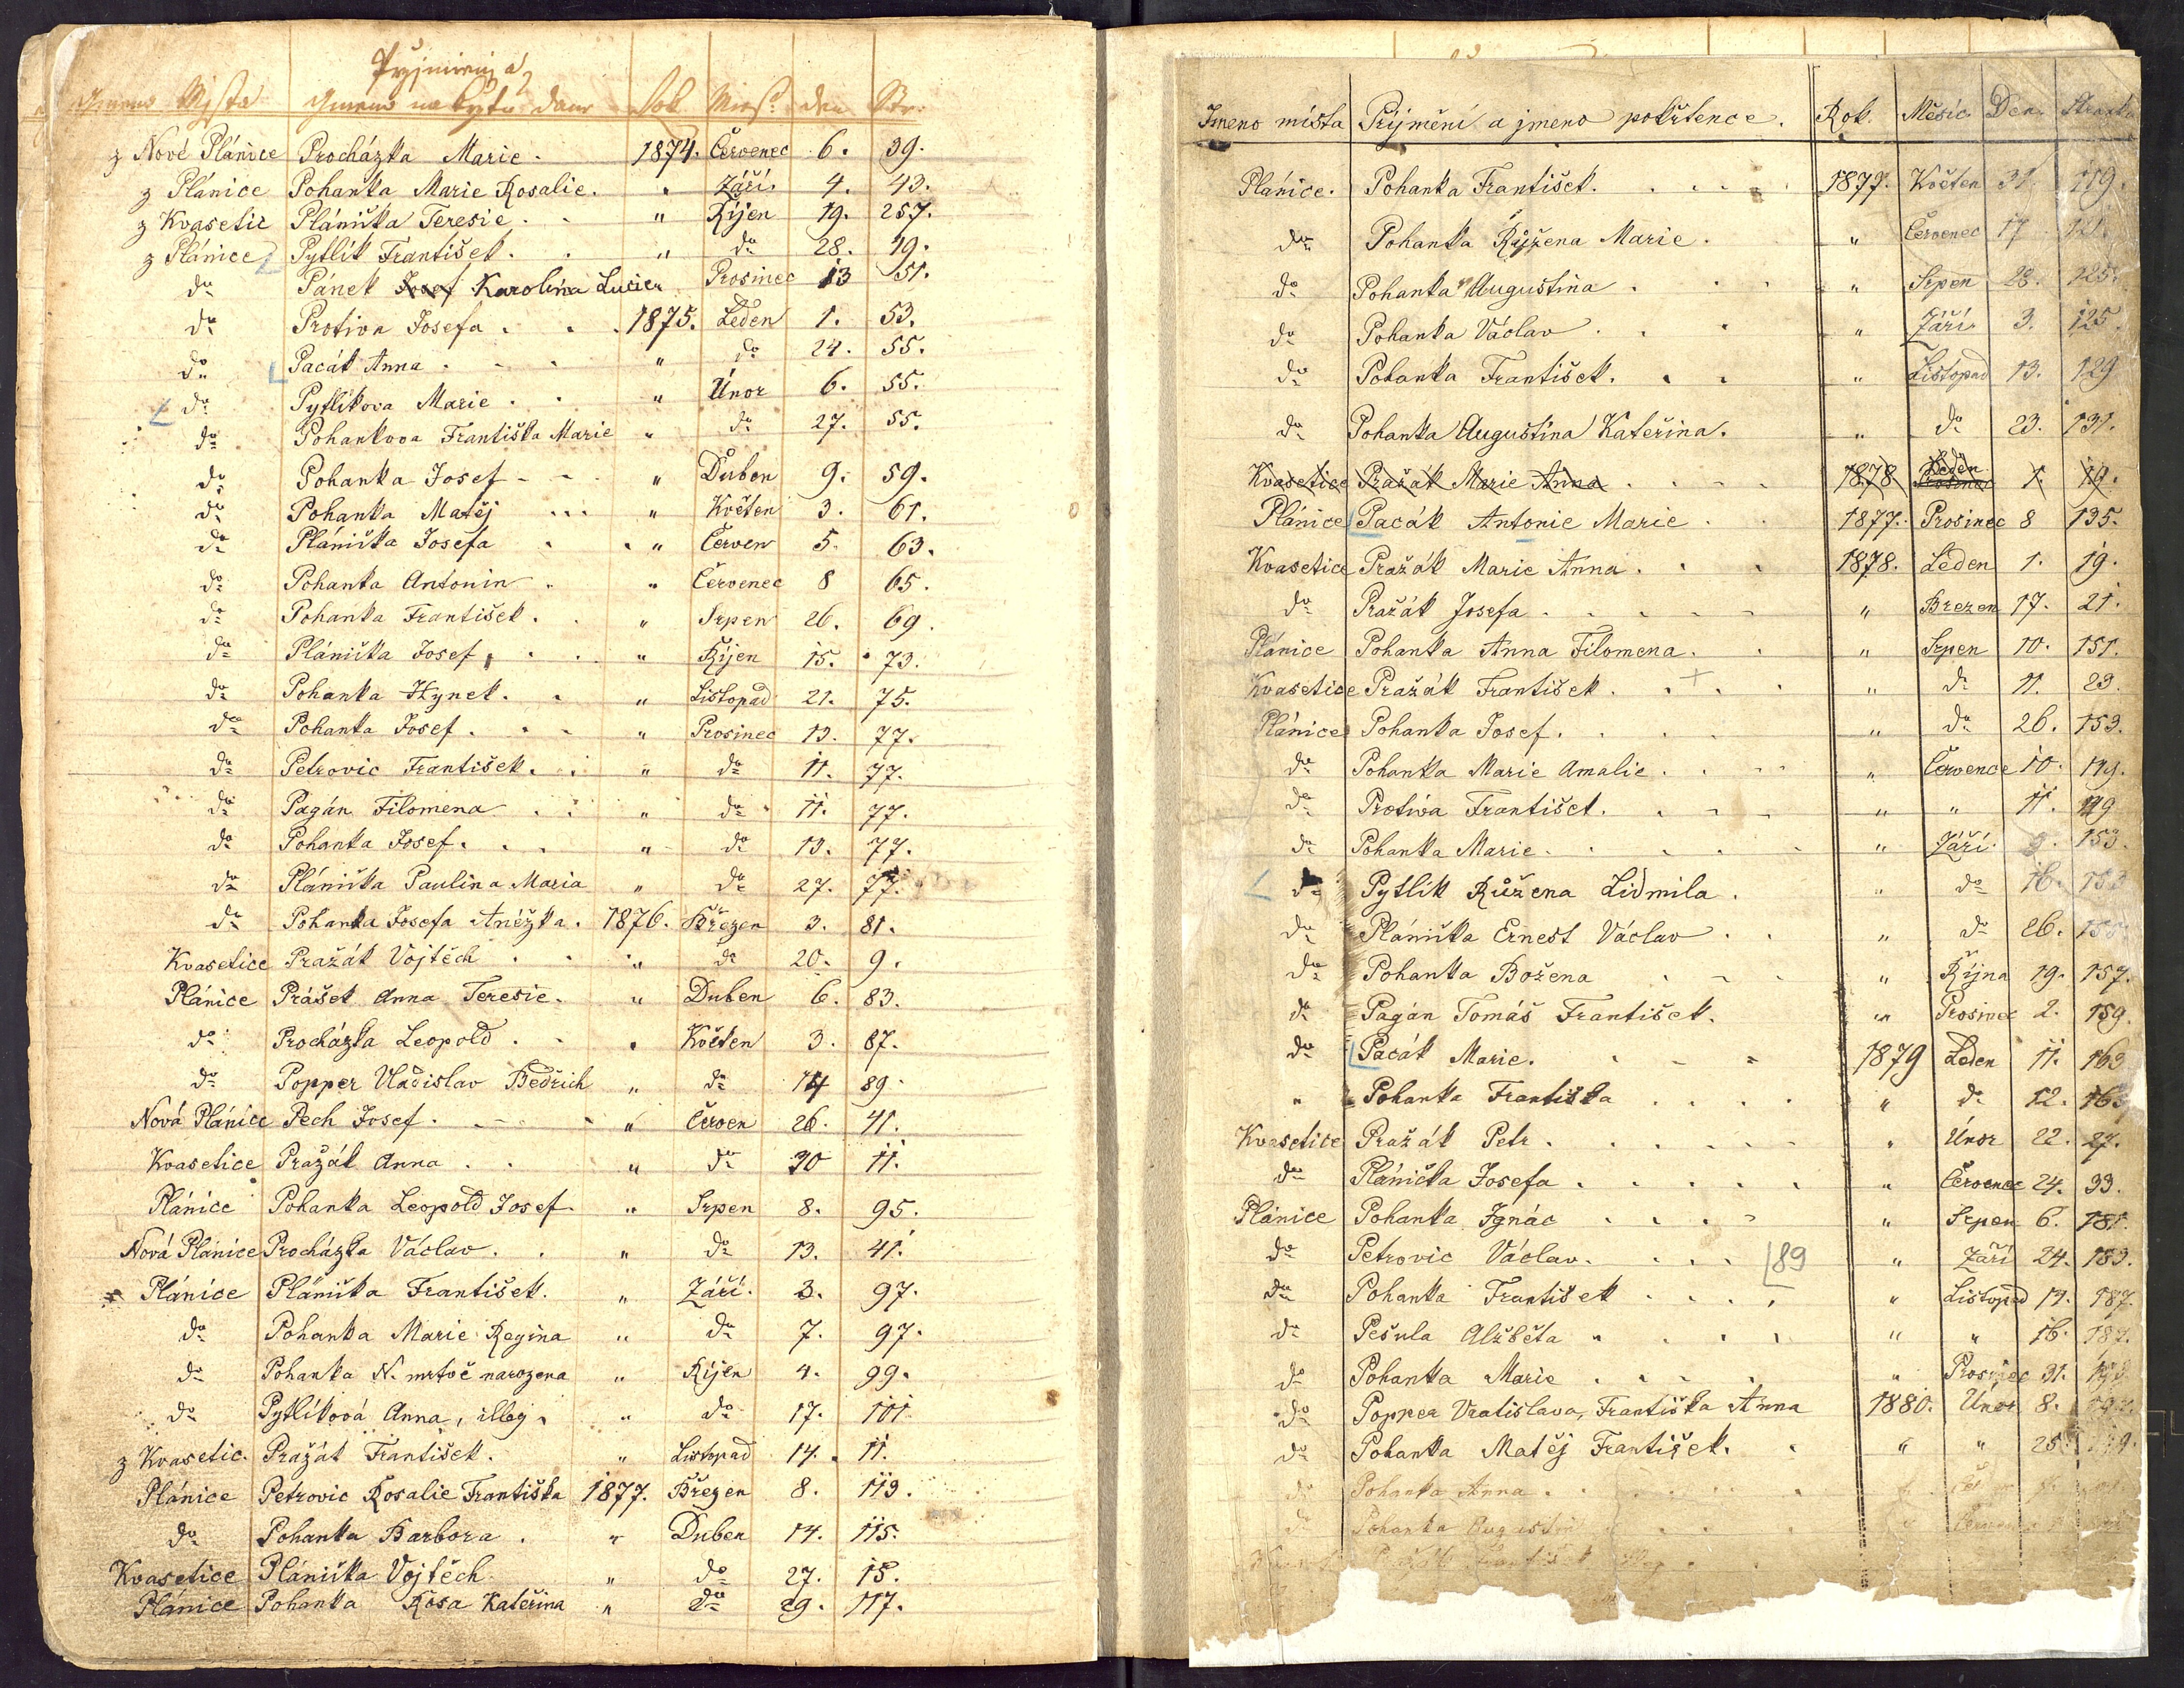 Přyjmienj a
Gmeno Mjsta Gmeno na křtu dané Rok Měs: den Str:
z Nové Plánice Procházka Marie. 1874. Červenec 6. 39.
z Plánice Pohanka Marie Rosalie. " Září 4. 43.
z Kvasetic Plánička Teresie. " Říjen 19. 257.
z Plánice Pytlík František. " do 28. 49.
do Pánek Josef Karolina Lucie " Prosinec 13 51.
do Protiva Josefa. 1875. Leden 1. 53.
do Pacák Anna " do 24. 55.
do Pytlikova Marie. " Únor 6. 55.
do Pohankova Františka Marie " do 27. 55.
do Pohanka Josef " Duben 9. 59.
do Pohanka Matěj " Květen 3. 61.
do Plánička Josefa " Červen 5. 63.
do Pohanka Antonin. " Červenec 8 65.
do Pohanka František. " Srpen 26. 69.
do Plánička Josef. " Říjen 15. 73.
do Pohanka Hynek. " Listopad 21. 75.
do Pohanka Josef. " Prosinec 13. 77.
do Petrovic František. " do 11. 77.
do Pagán Filomena " do 11. 77.
do Pohanka Josef. " do 13. 77.
do Plánička Paulina Maria " do 27. 77.
do Pohanka Josefa Anéžka. 1876. Březen 3. 81.
Kvasetice Pražák Vojtěch " do 20. 9.
Plánice Prášek Anna Teresie. " Duben 6. 83.
do Procházka Leopold. " Květen 3. 87.
do Popper Vladislav Bedřich " do 14 89.
Nová Plánice Pech Josef. " Červen 26. 41.
Kvasetice Pražák Anna. " do 30 11.
Plánice Pohanka Leopold Josef " Srpen 8. 95.
Nová Plánice Procházka Václav. " do 13. 41.
Plánice Plánička František. " Září. 3. 97.
do Pohanka Marie Regina " do 7. 97.
do Pohanka N. mrtvě narozena " Říjen 4. 99.
do Pytlíková Anna, illeg. " do 17. 101
z Kvasetic. Pražák František. " Listopad 14. 11.
Plánice Petrovic Rosalie Františka 1877. Březen 8. 113.
do Pohanka Barbora. " Duben 14. 115.
Kvasetice Plánička Vojtěch " do 27. 15.
Plánice Pohanka Rosa Kateřina " do 29. 117.
Jmeno místa Příjmění a jmeno pokřtence. Rok. Měsíc Den
Plánice. Pohanka František. 1877. Květen 31. 119.
do Pohanka Růžena Marie. " Červenec 17 121.
do Pohanka Augustina " Srpen 28. 125.
do Pohanka Václav " Září 3. 125.
do Pohanka František. " Listopad 13. 129
do Pohanka Augustina Kateřina. " do 23. 131.
Kvasetice Pražák Marie Anna 1878 Prosinec Leden 1. 19.
Plánice Pacák Antonie Marie 1877. Prosinec 8 135.
Kvasetice Pražák Marie Anna. 1878. Leden 1. 19.
do Pražák Josefa " Brezen 17. 21.
Plánice Pohanka Anna Filomena. " Srpen 10. 151.
Kvasetice Pražák František. + " do 11. 23.
Plánice Pohanka Josef. " do 26. 153.
do Pohanka Marie Amalie. " Července 10. 149.
do Protiva František. " " 11. 149
do Pohanka Marie. " Září. 153.
do Pytlík Růžena Lidmila. " do 16.
do Plánička Ernest Václav. " do 26.
do Pohanka Božena " Října 19. 157.
do Pagán Tomáš František. " Prosinec 2. 159.
do Pacák Marie. 1879 Leden 11. 163
" Pohanka Františka " do 12. 163
Kvasetice Pražák Petr. " Únor 22. 27.
do Plánička Josefa. " Červenec 24. 33.
Plánice Pohanka Ignác " Srpen 6. 181.
do Petrovic Václav. 89 " Září 24. 183.
do Pohanka František " Listopad 14. 187.
do Pešula Alžběta " " 16. 187.
do Pohanka Marie " Prosinec 31.
do Popper Vratislava, Františka Anna 1880. Únor 8.
do Pohanka Matěj František. " " 25.
do Pohanka Anna.
do Pohanka